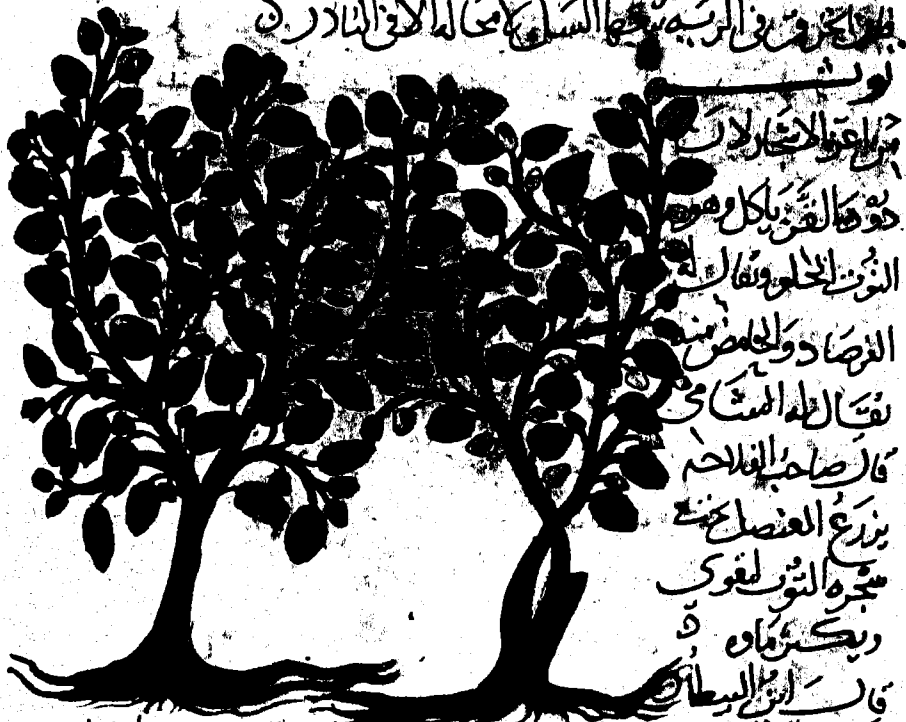 في الرية يتبعها السل لا محالة الا في النادر
توث
من اعز الاشجار لان
دود القز ياكل وهو
التوث الحلو ويقال له
الفرصاد والحامض منه
يقال له الشامي
قال صاحب الفلاحة
يزرع العنصل تحت
شجرة التوث لتقوى
ويكثر ماوه
قال ابن البيطار